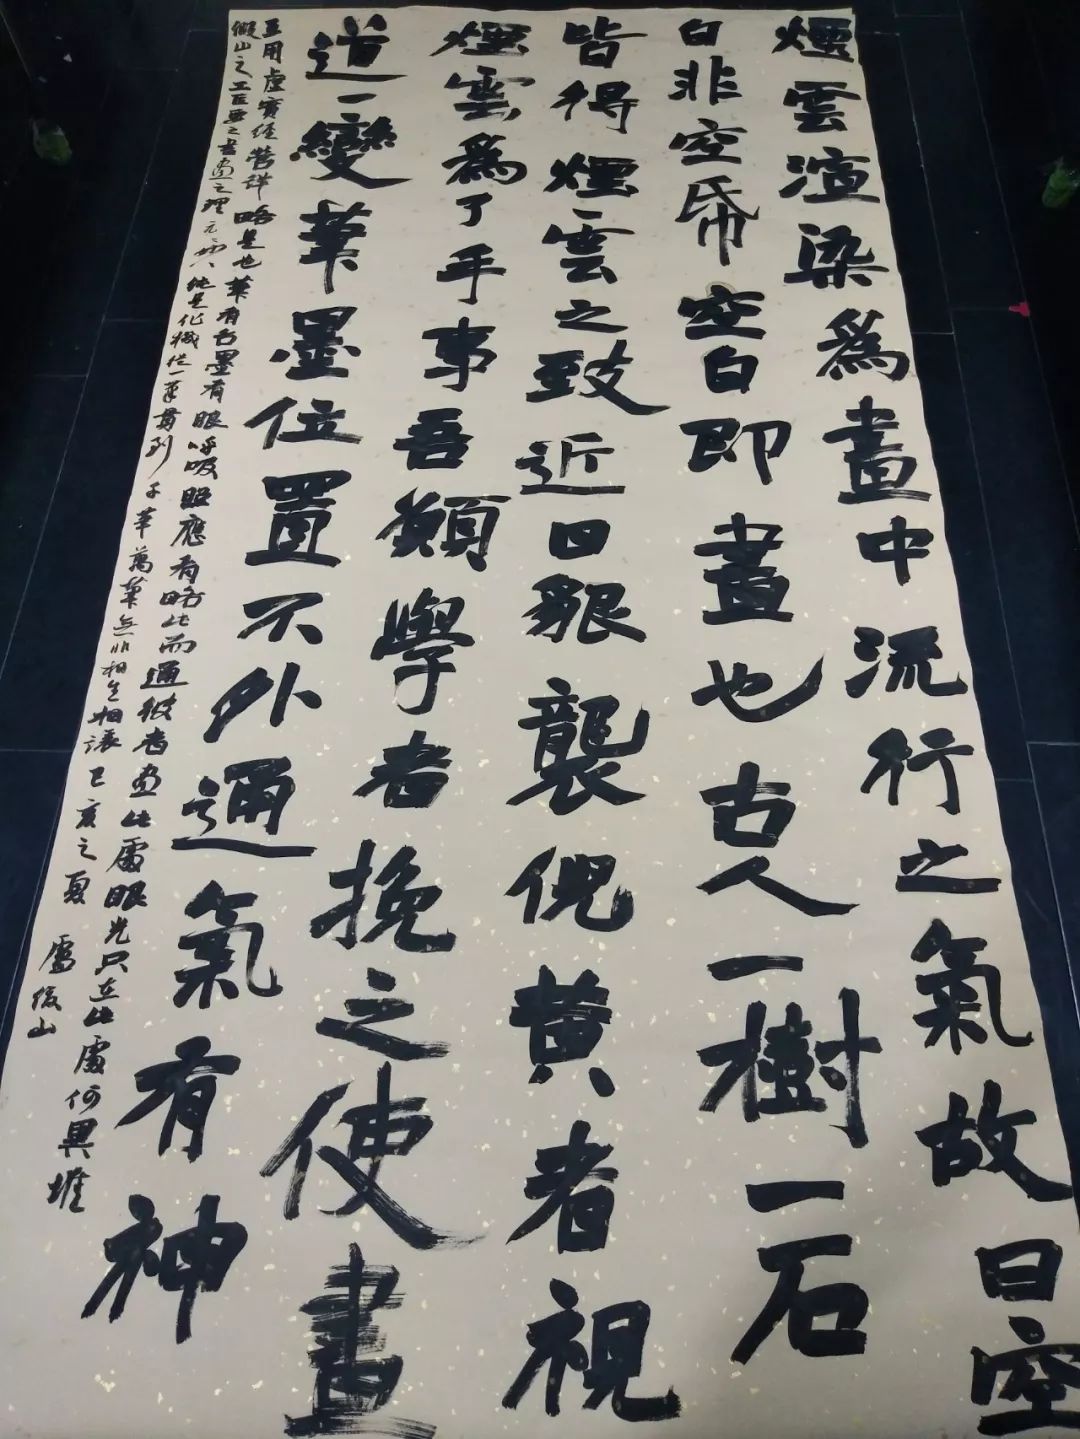 煙雲渲染爲畫中流行之氣故曰空
白非空帋空白即畫也古人一樹一石
皆得煙雲之致近日貌襲倪黄者視
煙雲爲了手事吾願學者挽之使畫
道一變筆墨位置不外通氣有神
互用虛實經營詳略是也筆有舌墨有眼呼吸照應有略此而通彼者畫此處眼光只在此處何異堆
假山之工匠要之書畫之理元之又元純是化機從一筆貫到千筆萬筆無非相生相讓己亥之夏 處俊山